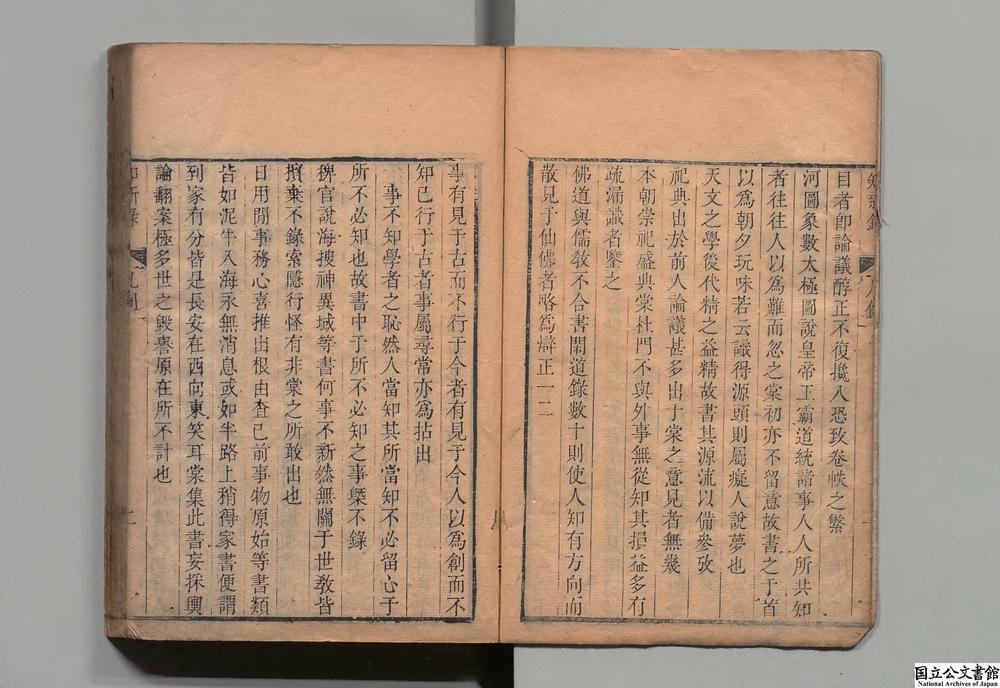 目者卽論議醇正不復攙入恐致卷帙之繁
河圖象數太極圖說皇帝王霸道統諸事人人所共知
者往往人以爲難而忽之棠初亦不留意故書之于首
以爲朝夕玩味若云識得源頭則屬癡人說夢也
天文之學後代精之益精故書其源流以備參攷
祀典出於前人論議甚多出于棠之意見者無幾
本朝崇祀盛典棠杜門不與外事無從知其損益多有
疏漏識者鑒之
佛道與儒敎不合書閑道錄數十則使人知有方向而
散見于仙佛者略爲辯正一二
事有見于古而不行于今者有見于今人以爲創而不
知已行于古者事屬尋常亦爲拈出
一事不知學者之恥然人當知其所當知不必留心于
所不必知也故書中于所不必知之事槩不錄
稗官說海搜神異域等書何事不新然無關于世敎皆
擯棄不錄索隱行怪有非棠之所敢出也
日用閒事務心喜推出根由査已前事物原始等書類
皆如泥牛入海永無消息或如半路上稍得家書便謂
到家有分皆是長安在西向東笑耳棠集此書妄採輿
論翻案極多世之毀譽原在所不計也
二
国立公文書館
National Archives of Japan